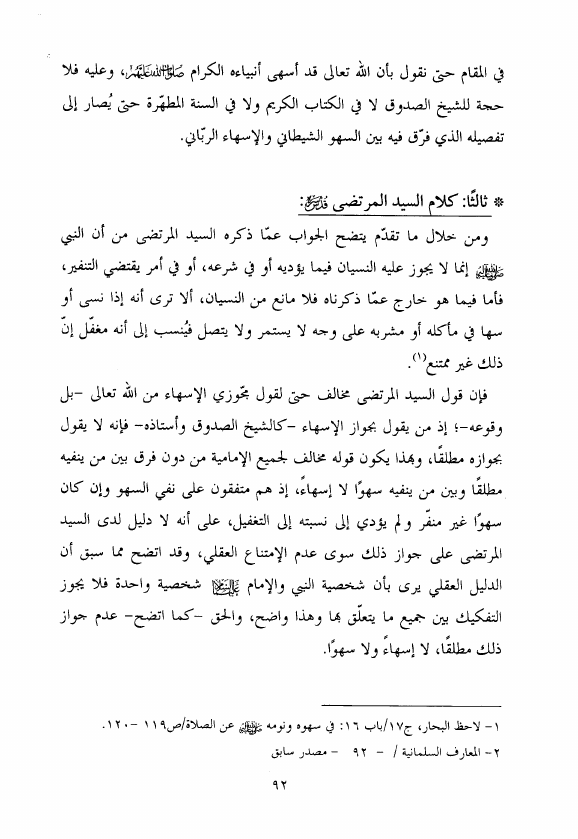 في المقام حتى نقول بأن الله تعالى قد أسهى أنبياءه الكرام صلوات الله عليهم، وعليه فلا
حجة للشيخ الصدوق لا في الكتاب الكريم ولا في السنة المطهّرة حتى يُصار إلى
تفصيله الذي فرّق فيه بين السهو الشيطاني والإسهاء الربّاني.
* ثالثًا: كلام السيد المرتضى قدس سره:
ومن خلال ما تقدّم يتضح الجواب عمّا ذكره السيد المرتضى من أن النبي
ﷺ إنما لا يجوز عليه النسيان فيما يؤديه أو في شرعه، أو في أمر يقتضي التنفير،
فأما فيما هو خارج عمّا ذكرناه فلا مانع من النسيان، ألا ترى أنه إذا نسى أو
سها في مأكله أو مشربه على وجه لا يستمر ولا يتصل فيُنسب إلى أنه مغفّل إنّ
ذلك غير ممتنع(١).
فإن قول السيد المرتضى مخالف حتى لقول مجّوزي الإسهاء من الله تعالى –بل
وقوعه–؛ إذ من يقول بجواز الإسهاء –كالشيخ الصدوق وأستاذه– فإنه لا يقول
بجوازه مطلقًا، وبهذا يكون قوله مخالف لجميع الإمامية من دون فرق بين من ينفيه
مطلقًا وبين من ينفيه سهوًا لا إسهاءً، إذ هم متفقون على نفي السهو وإن كان
سهوًا غير منفّر ولم يؤدي إلى نسبته إلى التغفيل، على أنه لا دليل لدى السيد
المرتضى على جواز ذلك سوى عدم الإمتناع العقلي، وقد اتضح مما سبق أن
الدليل العقلي يرى بأن شخصية النبي والإمام عليهما السلام شخصية واحدة فلا يجوز
التفكيك بين جميع ما يتعلّق بها وهذا واضح، والحق –كما اتضح– عدم جواز
ذلك مطلقًا، لا إسهاءً ولا سهوًا.
١– لاحظ البحار، ج١٧/باب ١٦: في سهوه ونومه ﷺ عن الصلاة/ص١١٩ –١٢٠.
٢– المعارف السلمانية / – ٩٢ – مصدر سابق
٩٢